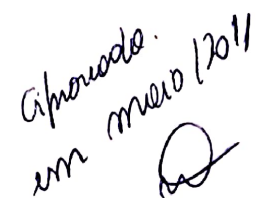 Aprovado.
em maio/2011